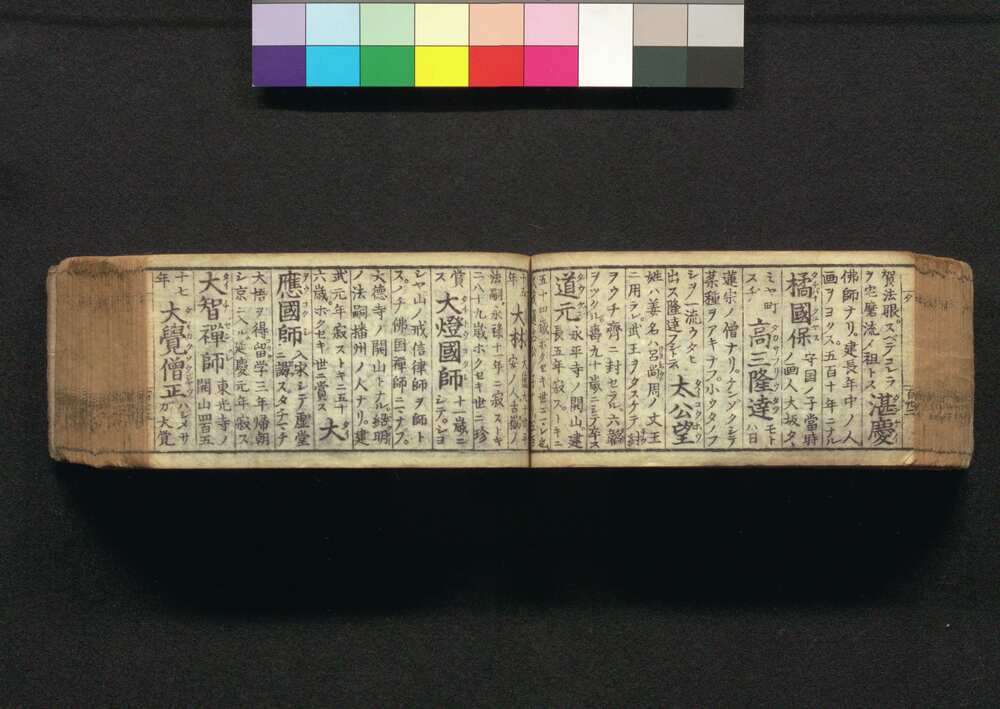 タ
賀法眼スベテコレラ 湛慶
ヲ宅麿流ノ祖トス
佛師ナリ建長年中ノ人
画ヲヨクス五百十年ニナル
橘國保 守国ノ子當時
ノ画人大坂タ
ミヤ町 高三隆達 モト
スチ ハ日
蓮宗ノ僧ナリ
藥種ヲアキナフ小ウタフ
シヲ一流ウタヒ 太公望
出ス隆達フシト云
姓ハ姜名ハ呂尚周ノ文王
ニ用ラレ武王ヲタスケテ紂
ヲウチ齊ニ封セラル六韜
ヲツクル壽九十歳ニシテ卒ス
道元 永平寺ノ開山建
長五年寂ス
五十四歳
大林
年 安ノ人古嶽ノ
法嗣永禄十一年ニ寂ストキ
二八十九歳ホクセキ世ニ珍
賞 大燈國師 十一歳ニ
ス シテショ
シヤ山ノ戒信律師ヲ師ト
スノチ佛国禅師ニマナブ
大德寺ノ開山トナル紹明
ノ法嗣播州ノ人ナリ建
武元年寂ストキ五十 大
六歳ホクセキ世ニ賞ス
應國師 入宋シテ虚堂
ニ謁スタチマチ
大悟ヲ得留学三年帰朝
シ京ニ入ル延慶元年寂ス
大智禪師 東光寺ノ
開山四百五
十七 大覺僧正 ハジメサ
年 ガ大覚